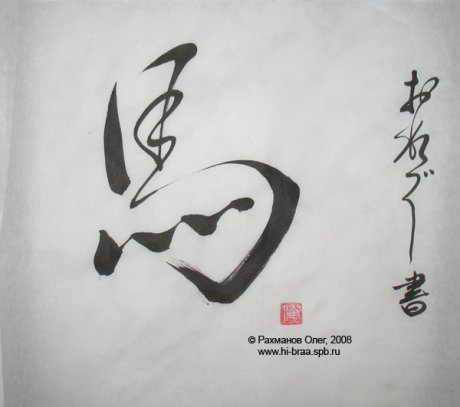 馬
書
© Рахманов Олег, 2008
www.hi-braa.spb.ru